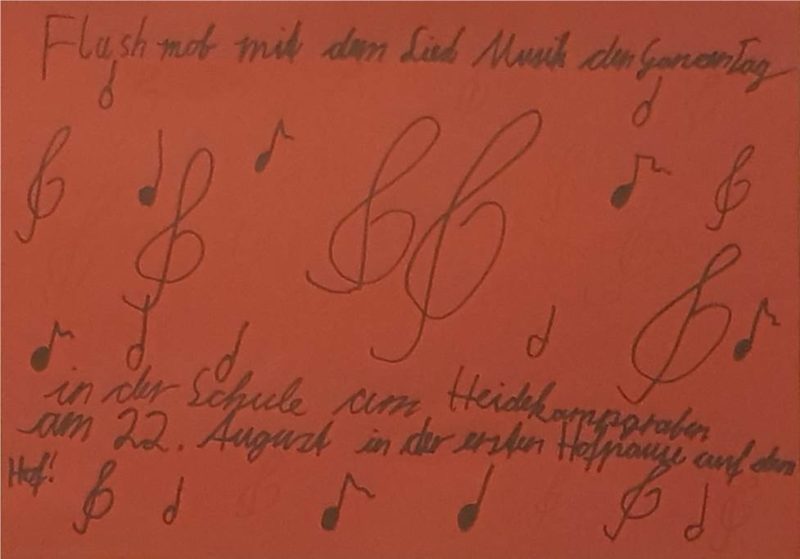 Flashmob mit dem Lied Musik den Ganzen Tag
in der Schule am Heidekampgraben
am 22. August in der ersten Hofpause auf dem
Hof!